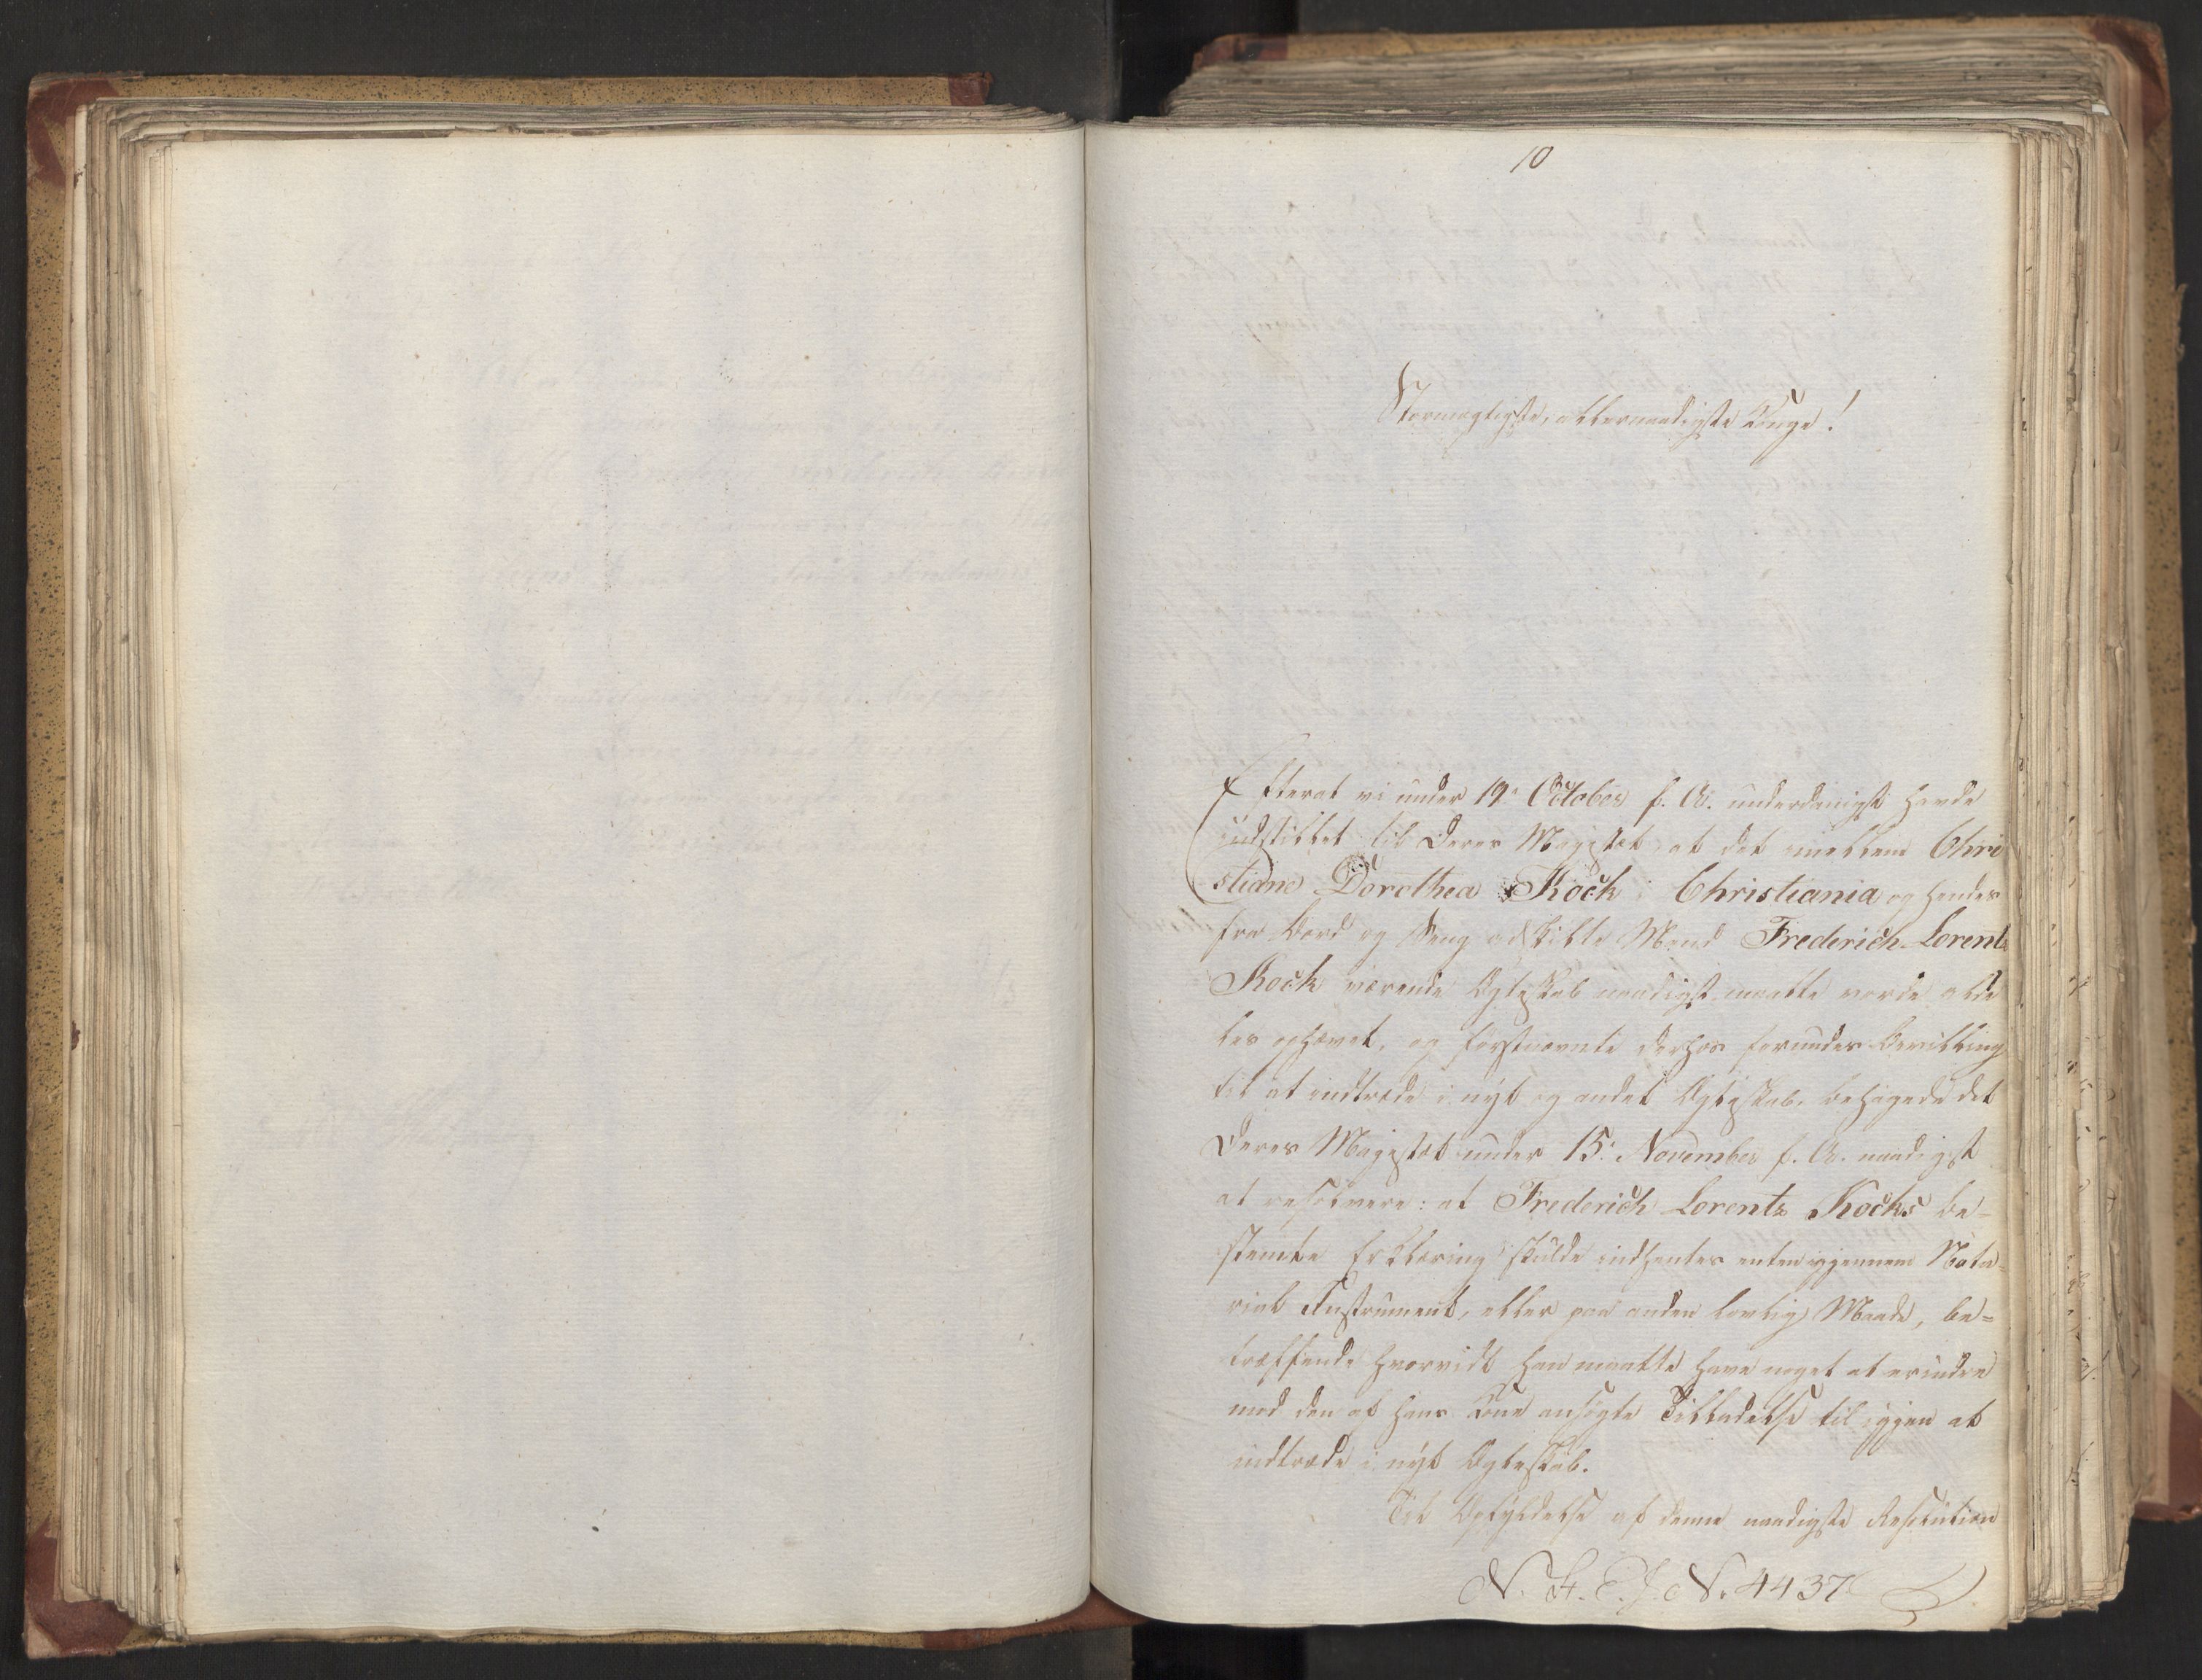 10
Stormægtigste, allernaadigste Konge!
Efterat vi under 19. October f. A. underdanigst havde
indstillet til Deres Majestæt, at det imellem Chri
stiane Dorothea Koch i Christiania og hendes
fra Bord og Seng adskilte Mand Frederich Lorentz
Koch værende Ægteskab naadigst maatte vorde alde
les ophævet, og förstnævnte derhos forundes Bevilling
til at indtræde i nyt og andet Ægteskab, behagede det
Deres Majestæt under 15. November f. A. naadigst
at resolvere: at Frederich Lorentz Kochs be-
stemte Erklæring skulde indhentes enten igjennem Nota-
rial Instrument, eller paa anden lovlig Maade, be=
træffende hvorvidt han maatte have noget at erindre
mod den af hans Kone ansögte Tilladelse til igjen at
indtræde i nyt Ægteskab.
Til Opfyldelse af denne naadigste Resolution
No. 4437